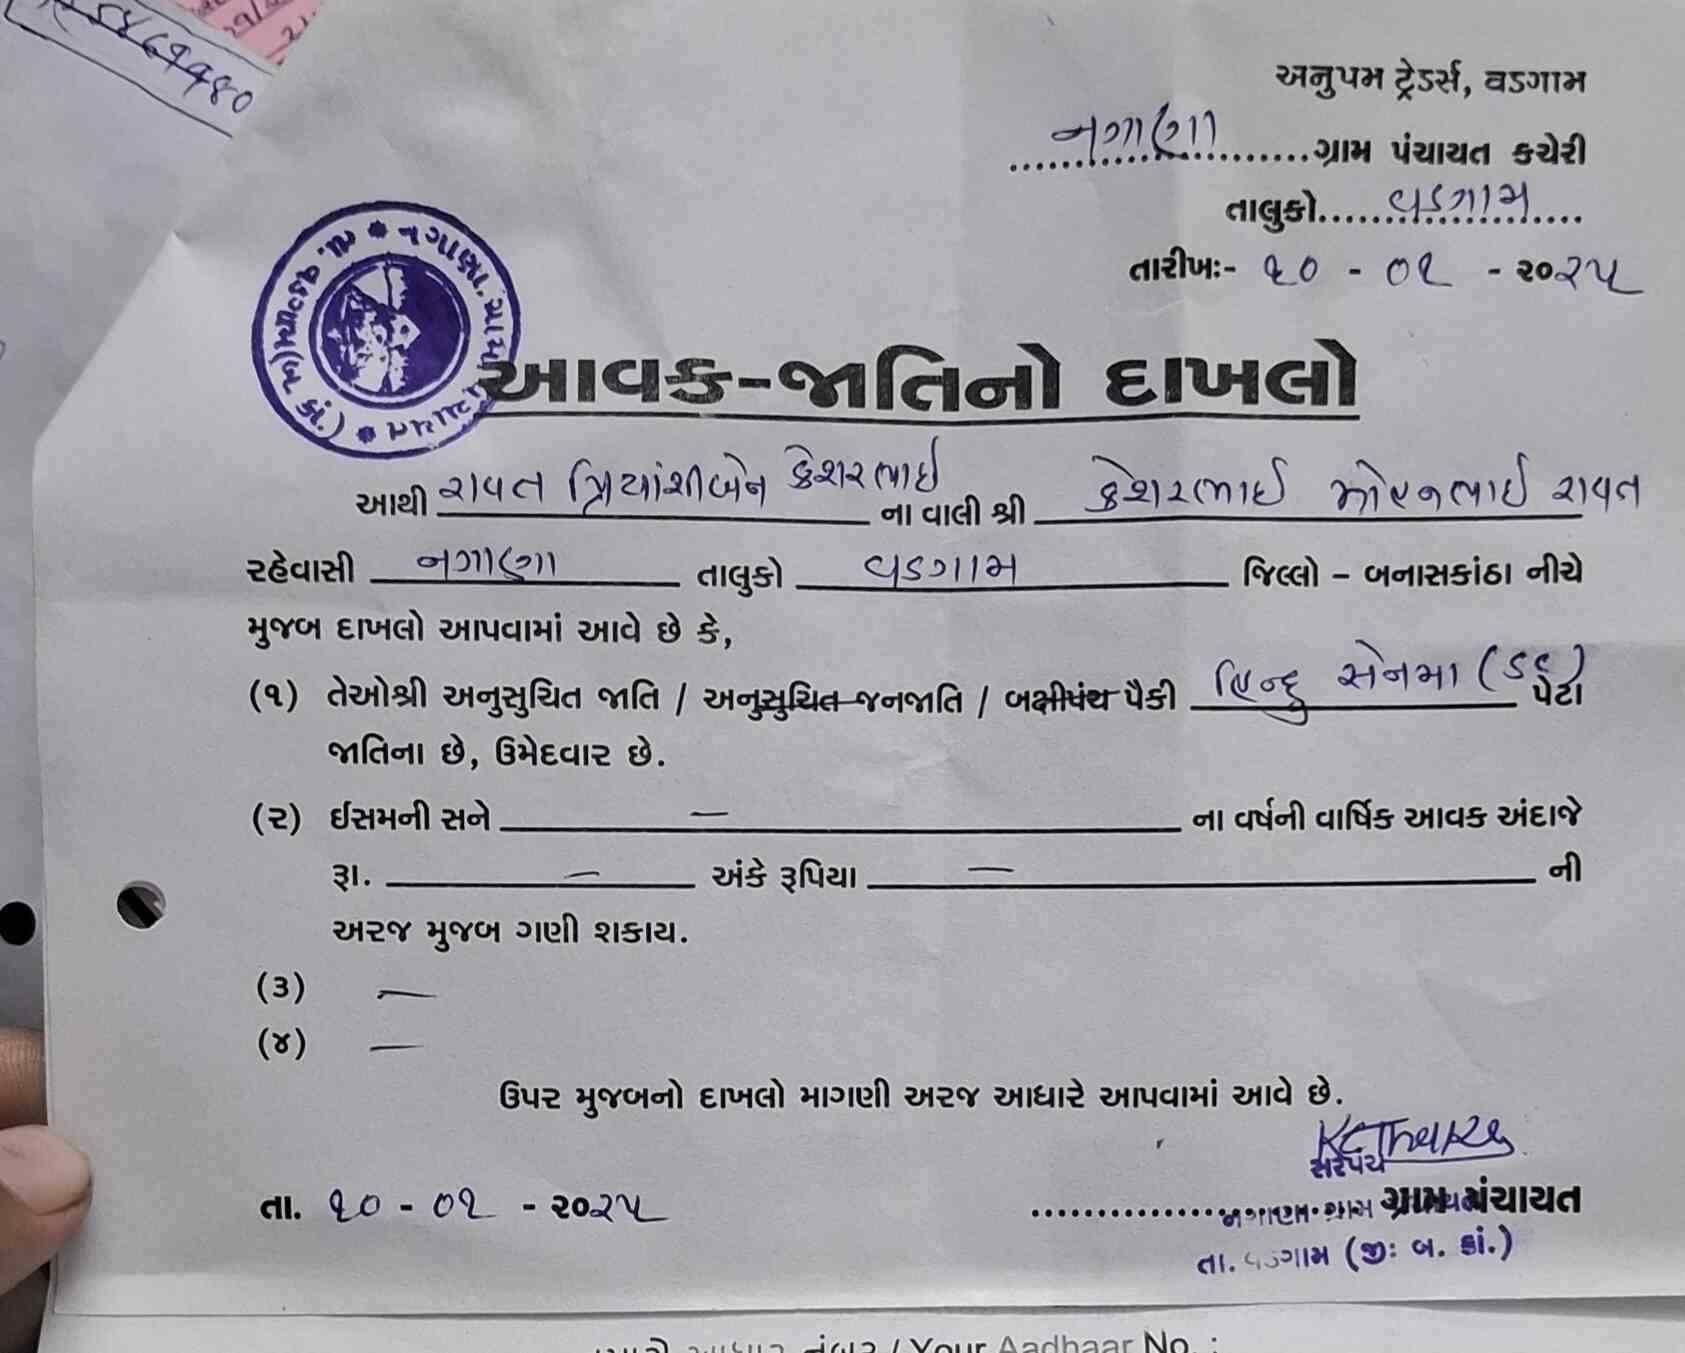 ૬૧૧૪૦
અનુપમ ટ્રેડર્સ, વડગામ
નગાણા ગ્રામ પંચાયત કચેરી
તાલુકો વડગામ
તારીખઃ- ૧૦ - ૦૧ - ૨૦૨૫
નગાણા ગ્રામ પંચાયત * તા. વડગામ(બ. કાં.) *
આવક-જાતિનો દાખલો
આથી રાવત પ્રિયાંશીબેન કેશરભાઇ ના વાલી શ્રી કેશરભાઇ મોહનભાઇ રાવત
રહેવાસી નગાણા તાલુકો વડગામ જિલ્લો – બનાસકાંઠા નીચે
મુજબ દાખલો આપવામાં આવે છે કે,
(૧) તેઓશ્રી અનુસુચિત જાતિ / અનુસુચિત જનજાતિ / બક્ષીપંચ પૈકી હિન્દુ સેનમા (૬૬) પેટા
જાતિના છે, ઉમેદવાર છે.
(૨) ઈસમની સને — ના વર્ષની વાર્ષિક આવક અંદાજે
રૂા. — અંકે રૂપિયા — ની
અરજ મુજબ ગણી શકાય.
(૩) —
(૪) —
ઉપર મુજબનો દાખલો માગણી અરજ આધારે આપવામાં આવે છે.
સરપંચ
તા. ૧૦ - ૦૧ - ૨૦૨૫ ગ્રામ પંચાયત
નગાણા ગ્રામ પંચાયત
તા. વડગામ (જીઃ બ. કાં.)
આધાર નંબર / Your Aadhaar No. :